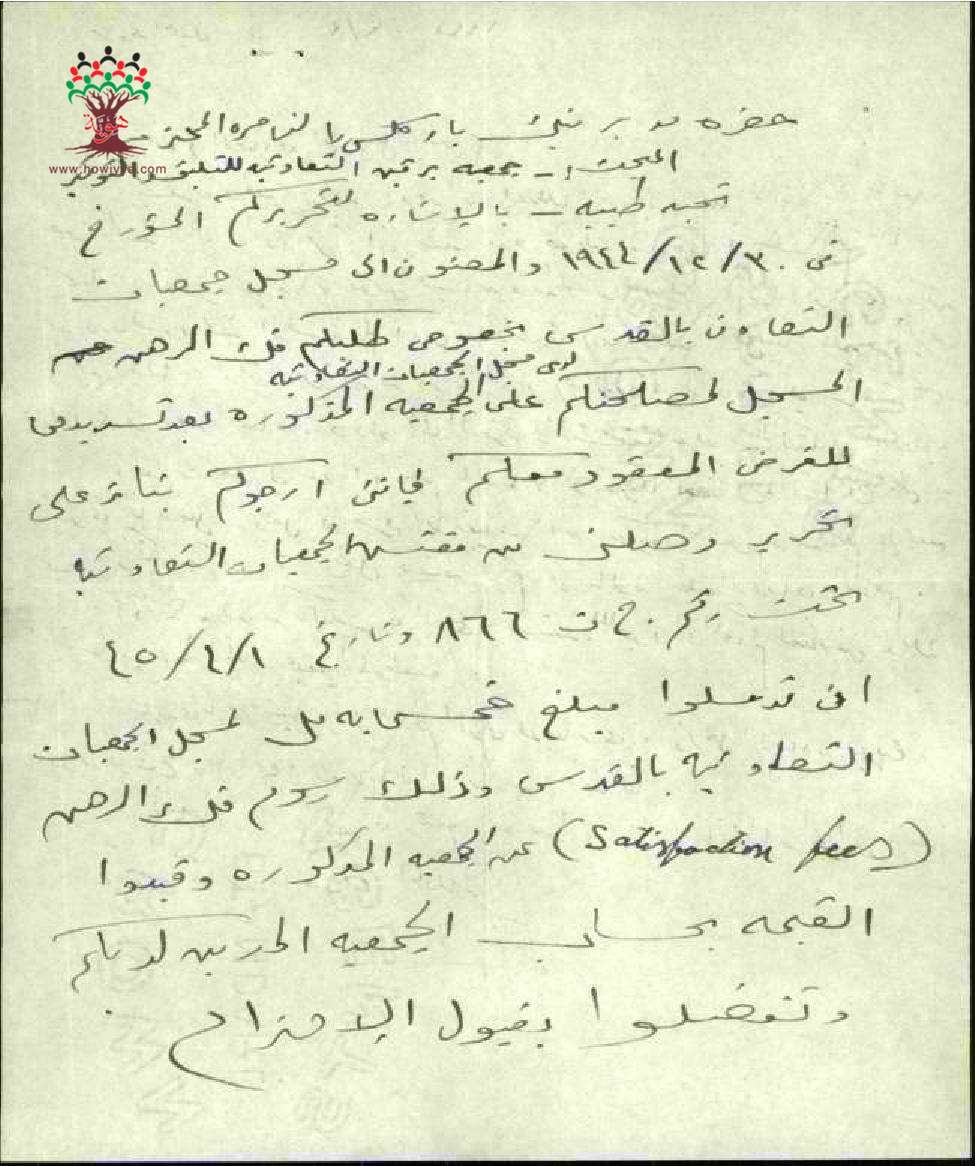 حضرة مدير بنك باركلس بالناصره المحترم
هوية
www.howiyya.com
المبحث :- جمعيه برقين التعاونيه للتسليف والتوفير
تحيه طيبه - بالاشاره لتحريركم المؤرخ
في ٣٠/١٢/١٩٤٤ والمعنون الى مسجل جمعيات
التعاون بالقدس بخصوص طلبكم فك الرهن
لدى مسجل الجمعيات التعاونيه
المسجل لمصلحتكم على الجمعيه المذكوره بعد تسديدها
للقرض المعقود معكم فإنني ارجوكم بناء على
تحرير وصلني من مفتش الجمعيات التعاونيه
تحت رقم ج ت ٨٦٦ وتاريخ ٤٥/٤/١
ان ترسلوا مبلغ خمسمايه مل لمسجل الجمعيات
التعاونيه بالقدس وذلك رسوم فك الرهن
(Satisfaction fees) عن الجمعيه المذكوره وقيدوا
القيمه بحساب الجمعيه المدين لديكم
وتفضلوا بقبول الاحترام